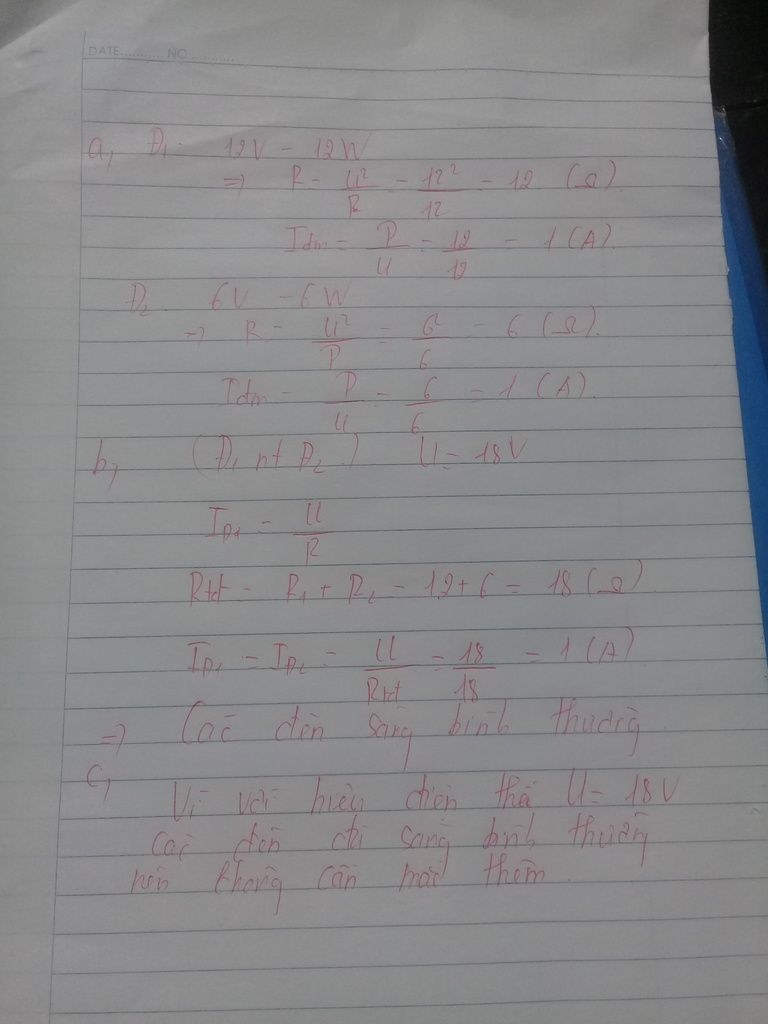 DATE........... NO ...........
a, Đ1: 12V - 12W
=> R = U²/R = 12²/12 = 12 (Ω)
Idm = P/U = 12/12 = 1 (A)
Đ2: 6V - 6W
=> R = U²/P = 6²/6 = 6 (Ω)
Idm = P/U = 6/6 = 1 (A)
b, (Đ1 nt Đ2) U = 18V
IĐ1 = U/R
Rtđ = R1 + R2 = 12 + 6 = 18 (Ω)
IĐ1 = IĐ2 = U/Rtđ = 18/18 = 1 (A)
=> Các đèn sáng bình thường
c,
Vì với hiệu điện thế U = 18V
các đèn đã sáng bình thường
nên không cần mắc thêm